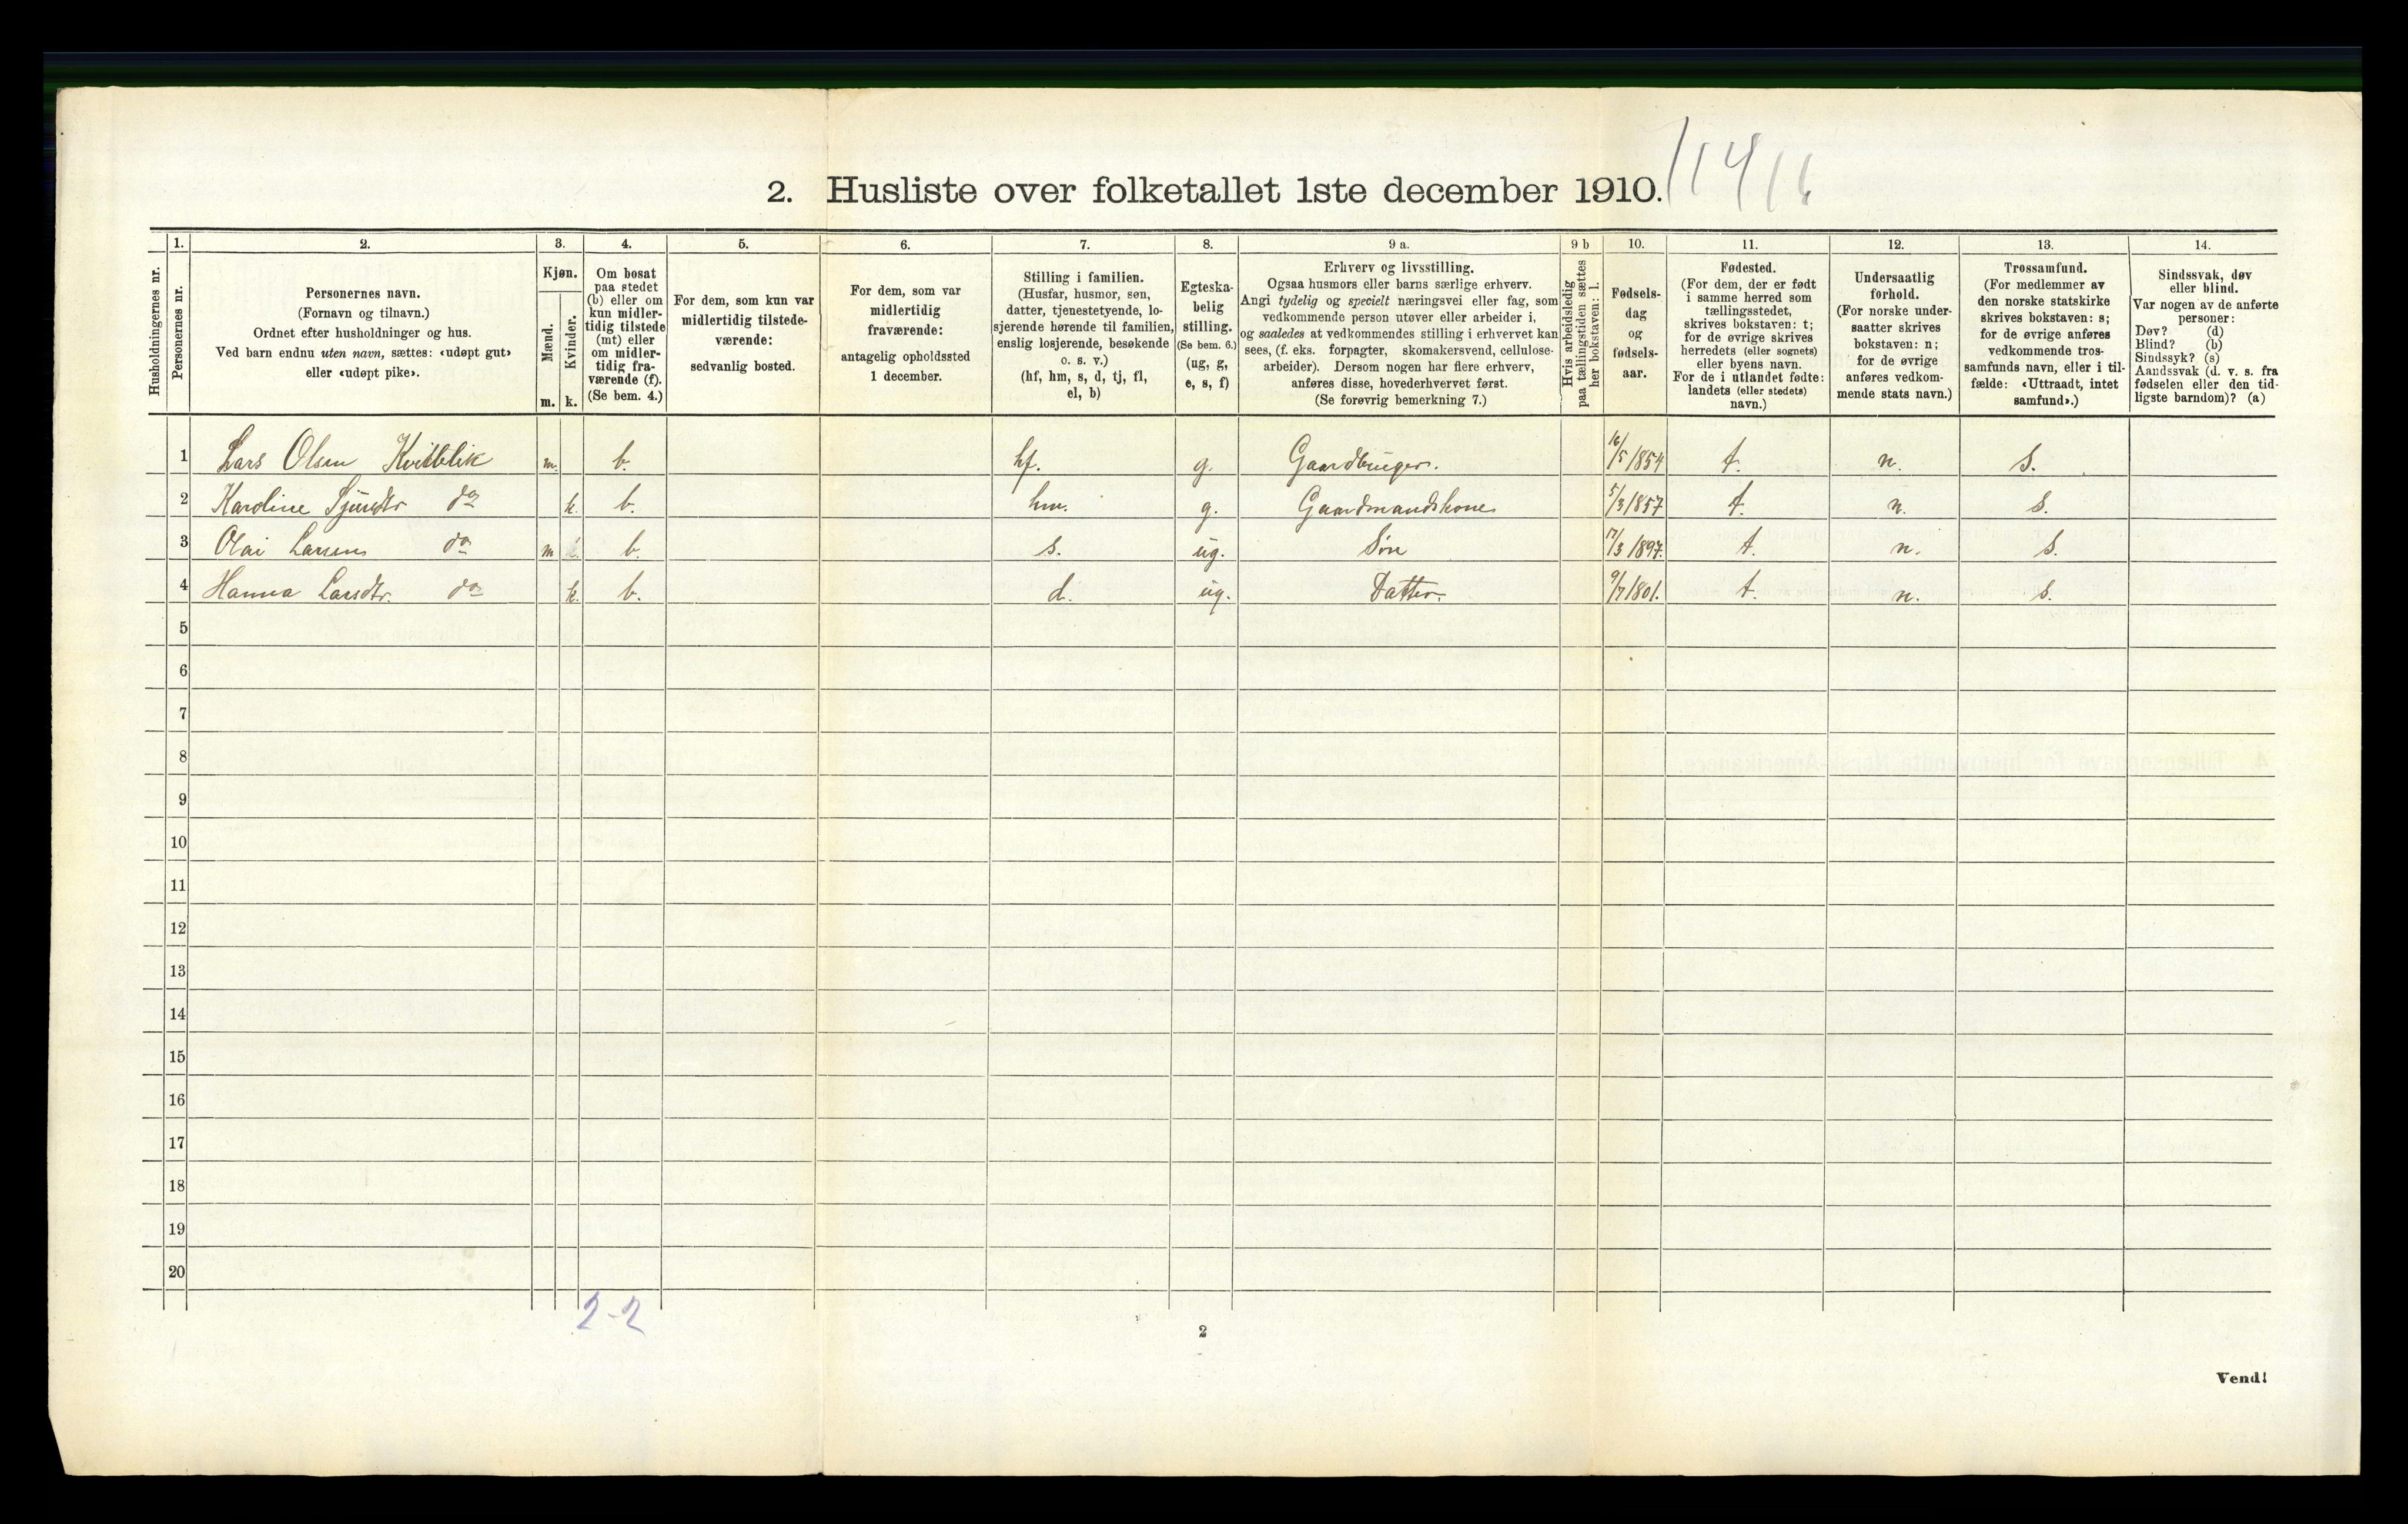 2. Husliste over folketallet 1ste december 1910.
Husholdningernes nr.
1. Personernes nr.
2. Personernes navn.
(Fornavn og tilnavn.)
Ordnet efter husholdninger og hus.
Ved barn endnu uten navn, sættes: «udøpt gut»
eller «udøpt pike».
3. Kjøn.
Mænd. m.
Kvinder. k.
4. Om bosat
paa stedet
(b) eller om
kun midler-
tidig tilstede
(mt) eller
om midler-
tidig fra-
værende (f).
(Se bem. 4.)
5. For dem, som kun var
midlertidig tilstede-
værende:
sedvanlig bosted.
6. For dem, som var
midlertidig
fraværende:
antagelig opholdssted
1 december.
7. Stilling i familien.
(Husfar, husmor, søn,
datter, tjenestetyende, lo-
sjerende hørende til familien,
enslig losjerende, besøkende
o. s. v.)
(hf, hm, s, d, tj, fl,
el, b)
8. Egteska-
belig
stilling.
(Se bem. 6.)
(ug, g,
e, s, f)
9 a. Erhverv og livsstilling.
Ogsaa husmors eller barns særlige erhverv.
Angi tydelig og specielt næringsvei eller fag, som
vedkommende person utøver eller arbeider i,
og saaledes at vedkommendes stilling i erhvervet kan
sees, (f. eks. forpagter, skomakersvend, cellulose-
arbeider). Dersom nogen har flere erhverv,
anføres disse, hovederhvervet først.
(Se forøvrig bemerkning 7.)
9 b Hvis arbeidsledig
paa tællingstiden sættes
her bokstaven: l.
10. Fødsels-
dag
og
fødsels-
aar.
11. Fødested.
(For dem, der er født
i samme herred som
tællingsstedet,
skrives bokstaven: t;
for de øvrige skrives
herredets (eller sognets)
eller byens navn.
For de i utlandet fødte:
landets (eller stedets)
navn.)
12. Undersaatlig
forhold.
(For norske under-
saatter skrives
bokstaven: n;
for de øvrige
anføres vedkom-
mende stats navn.)
13. Trossamfund.
(For medlemmer av
den norske statskirke
skrives bokstaven: s;
for de øvrige anføres
vedkommende tros-
samfunds navn, eller i til-
fælde: «Uttraadt, intet
samfund».)
14. Sindssvak, døv
eller blind.
Var nogen av de anførte
personer:
Døv? (d)
Blind? (b)
Sindssyk? (s)
Aandssvak (d. v. s. fra
fødselen eller den tid-
ligste barndom)? (a)
1 Lars Olsen Kvitblik m. b. hf. g. Gaardbruger. 16/5 1854 t. n. s.
2 Karoline Sjurdtr do k. b. hm. g. Gaardmandskone 5/3 1857 t. n. s.
3 Olai Larsen do m b. s. ug. Søn 17/3 1897. t. n. s.
4 Hanna Larsdtr. do k. b. d. ug. Datter. 9/7 1801. t. n. s.
5
6
7
8
9
10
11
12
13
14
15
16
17
18
19
20
2-2
2
Vend!